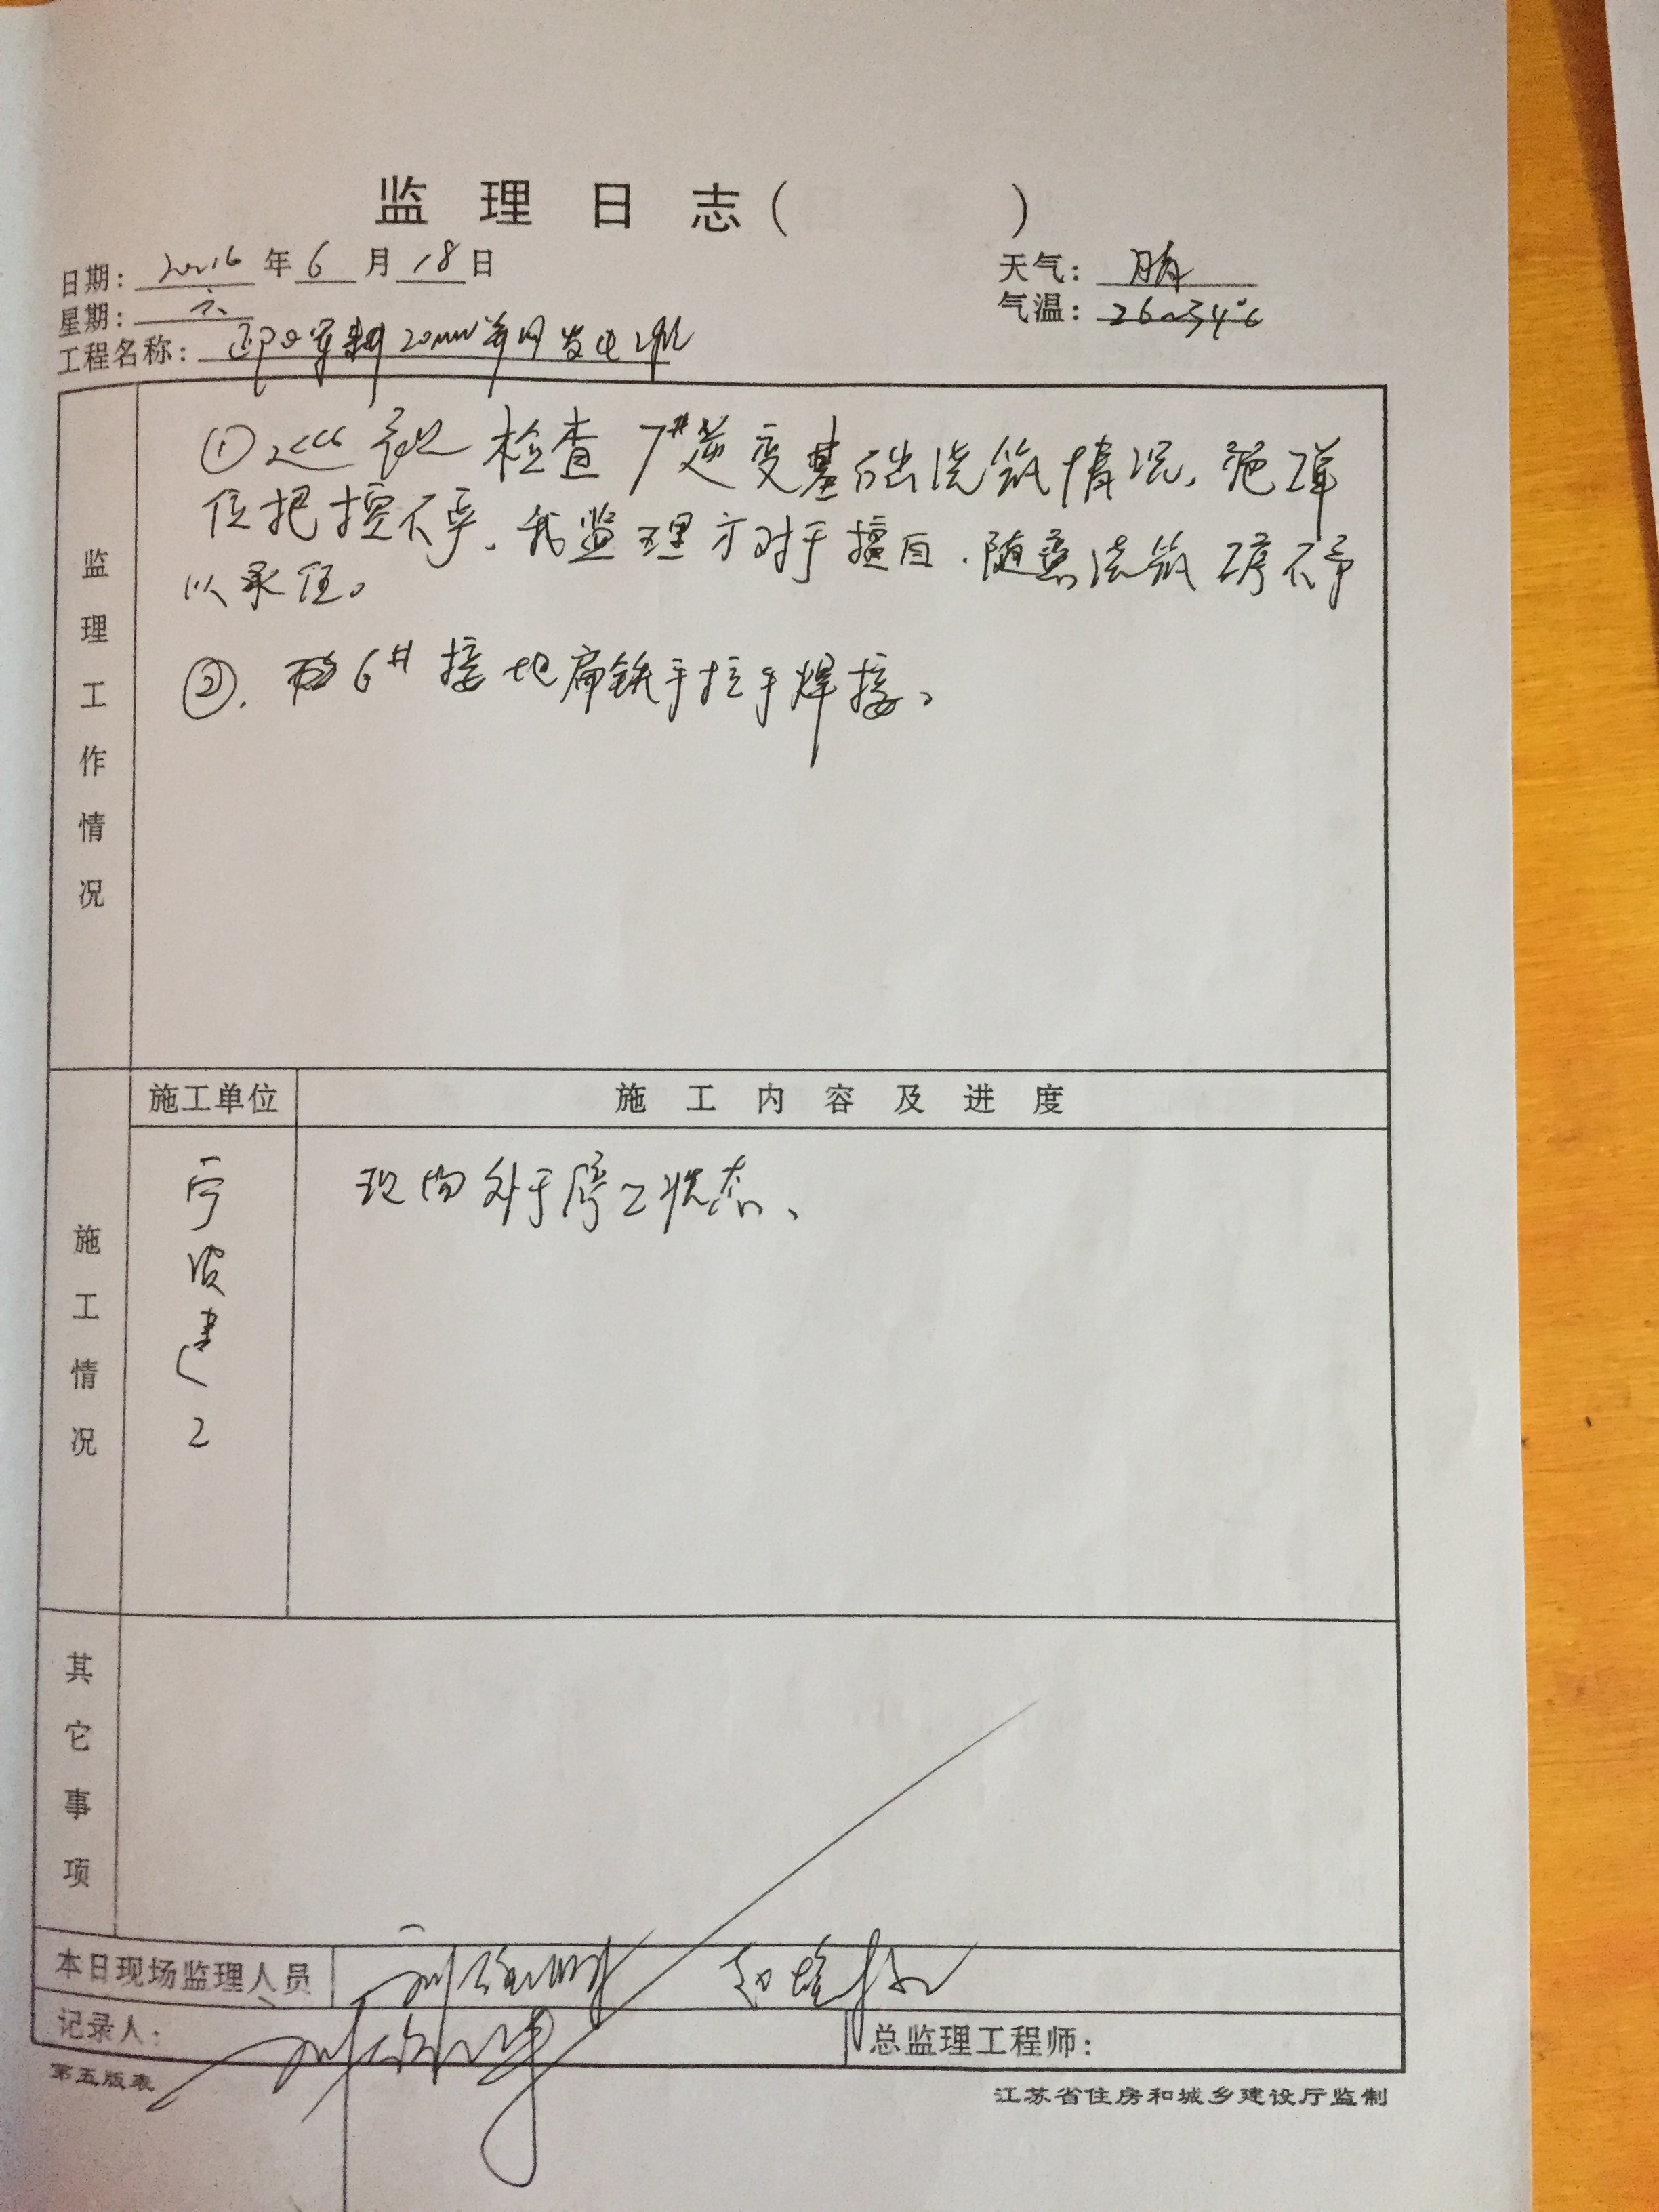 监理日志（ ）
日期：2016年6月18日 天气：晴
星期：六 气温：26~34℃
工程名称： 20MW并网发电
①巡视检查7#逆变基础浇筑情况，施工单
位把控不严、我监理方对于擅自、随意浇筑 不予
以承任。
②. 6#接地扁铁手拉手焊接。
监理工作情况
施工单位 施工内容及进度
宁波建工 现场处于停工状态、
施工情况
其它事项
本日现场监理人员
记录人： 总监理工程师：
第五版表 江苏省住房和城乡建设厅监制